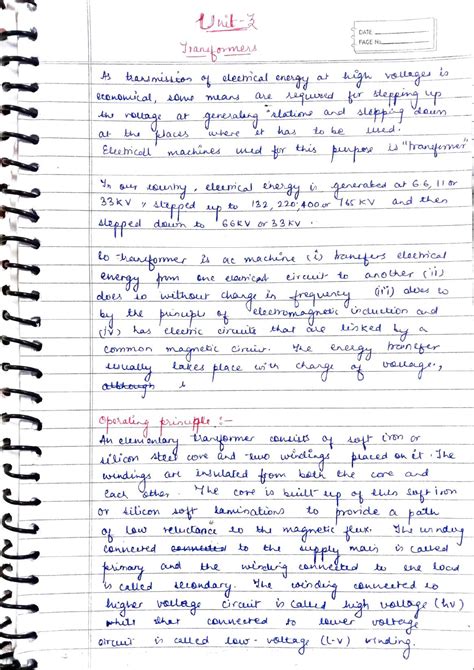 Unit-2
DATE
PAGE No.
Transformers
As transmission of electrical energy at high voltages is
economical, some means are required for stepping up
the voltage at generating stations and stepping down
at the places where it has to be used.
Electrical machines used for this purpose is "transformer"
In our country, electrical energy is generated at 6.6, 11 or
33KV, stepped up to 132, 220, 400 or 765 KV and then
stepped down to 66KV or 33KV.
So transformer is ac machine (i) transfers electrical
energy from one electrical circuit to another (ii)
does so without change in frequency (iii) does so
by the principle of electromagnetic induction and
(iv) has electric circuits that are linked by a
common magnetic circuit. The energy transfer
usually takes place with change of voltage,
although
Operating principle :-
An elementary transformer consists of soft iron or
silicon steel core and two windings placed on it. The
windings are insulated from both the core and
each other. The core is built up of thin soft iron
or silicon soft laminations to provide a path
of low reluctance to the magnetic flux. The winding
connected connected to the supply main is called
primary and the winding connected to the load
is called secondary. The winding connected to
higher voltage circuit is called high voltage (h.v)
while that connected to lower voltage
circuit is called low-voltage (l-v) winding.